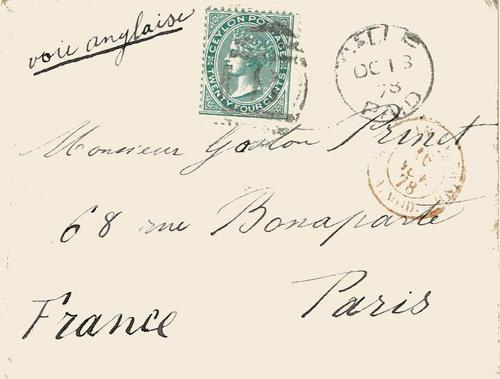 voie anglaise
CEYLON POSTAGE
TWENTY FOUR CENTS
GALLE
OC 13
78
PAID
Monsieur Gaston Prinet
68 rue Bonaparte
Paris
France